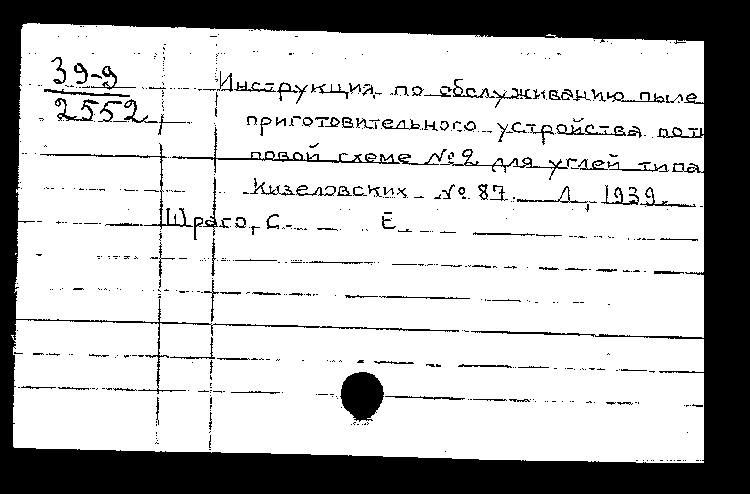 39-9
2552
Инструкция по обслуживанию пыле
приготовительного устройства по ти
повой схеме № 2 для углей типа
Кизеловских № 87. Л, 1939.
Шраго, С. Е.